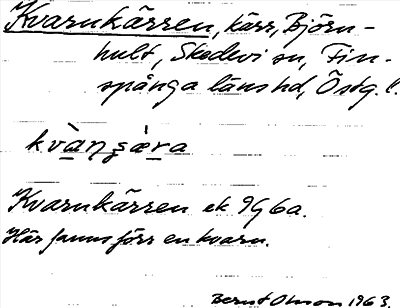 Kvarnkärren, kärr, Björn-
hult, Skedevi sn, Fin-
spånga länshd, Östg. l.
kvàŋʂæ̀ra
Kvarnkärren ek 9G 6a.
Här fanns förr en kvarn.
Bernt Olsson 1963.